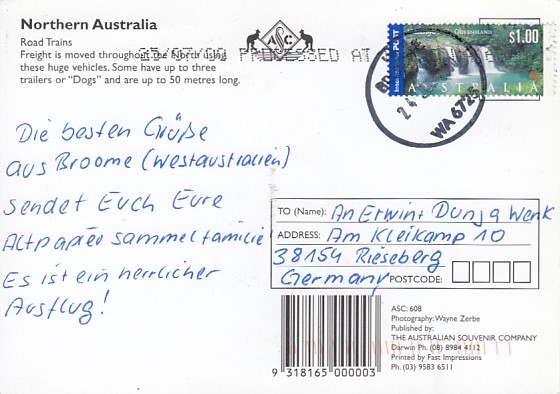 Northern Australia
Road Trains
Freight is moved throughout the North using
these huge vehicles. Some have up to three
trailers or "Dogs" and are up to 50 metres long.
PROCESSED AT
ASC
International POST
QUEENSLAND
$1.00
AUSTRALIA
WA 6725
Die besten Grüße
aus Broome (Westaustralien)
sendet Euch Eure
Altpapier sammelfamilie!
Es ist ein herrlicher
Ausflug!
TO (Name): An Erwin + Dunja Wenk
ADDRESS: Am Kleikamp 10
38154 Rieseberg
Germany POSTCODE:
ASC: 608
Photography: Wayne Zerbe
Published by:
THE AUSTRALIAN SOUVENIR COMPANY
Darwin Ph. (08) 8984 4112
Printed by Fast Impressions
Ph. (03) 9583 6511
9 318165 000003